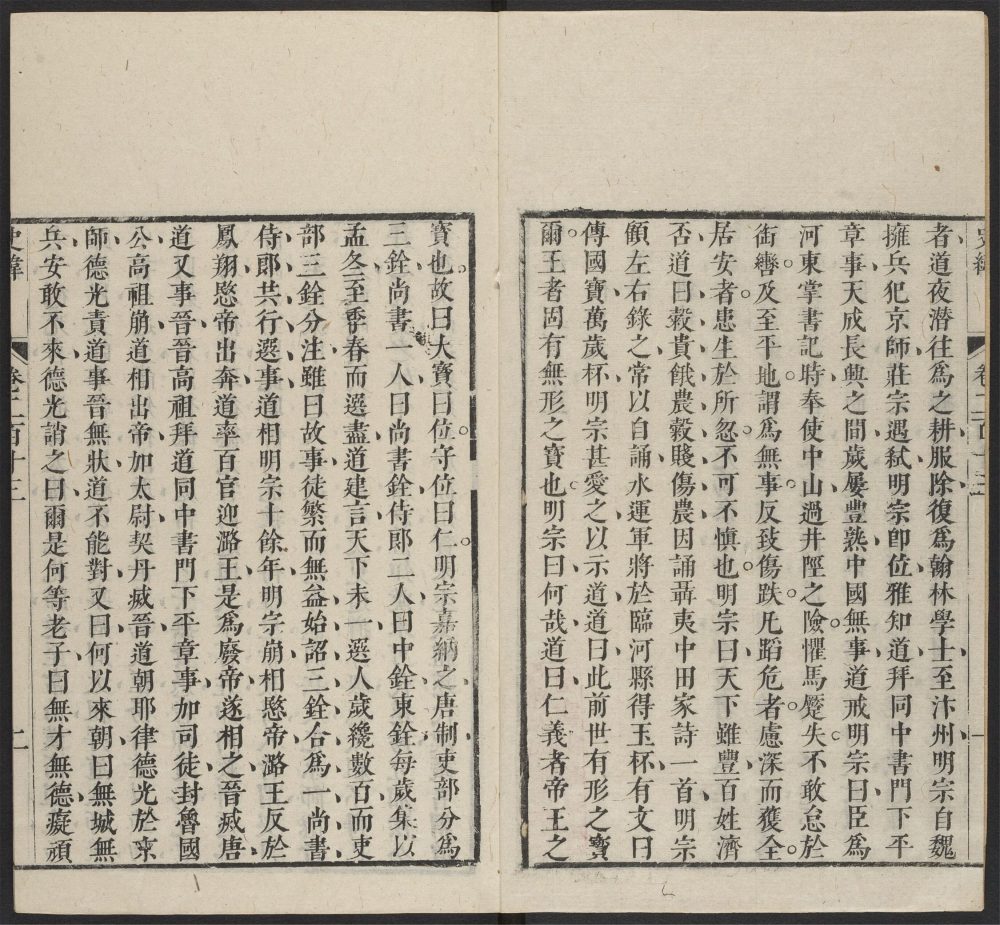 史緯 卷二百十三 一
者道夜潜往爲之耕服除復爲翰林學士至汴州明宗自魏
擁兵犯京師莊宗遇弑明宗卽位雅知道拜同中書門下平
章事天成長興之間歲屢豐熟中國無事道戒明宗曰臣爲
河東掌書記時奉使中山過井陘之險懼馬蹷失不敢怠於
銜轡及至平地謂爲無事反致傷跌凡蹈危者慮深而獲全
居安者患生於所忽不可不慎也明宗曰天下雖豐百姓濟
否道曰穀貴餓農穀賤傷農因誦聶夷中田家詩一首明宗
顧左右錄之常以自誦水運軍將於臨河縣得玉杯有文曰
傳國寶萬歲杯明宗甚愛之以示道道曰此前世有形之寶
爾王者固有無形之寶也明宗曰何哉道曰仁義者帝王之
寶也故曰大寶曰位守位曰仁明宗嘉納之唐制吏部分爲
三銓尚書一人曰尚書銓侍郎二人曰中銓東銓每歲集以
孟冬至季春而選盡道建言天下未一選人歲纔數百而吏
部三銓分注雖曰故事徒繁而無益始詔三銓合爲一尚書
侍郎共行選事道相明宗十餘年明宗崩相愍帝潞王反於
鳳翔愍帝出奔道率百官迎潞王是爲廢帝遂相之晉滅唐
道又事晉晉高祖拜道同中書門下平章事加司徒封魯國
公高祖崩道相出帝加太尉契丹滅晉道朝耶律德光於京
師德光責道事晉無狀道不能對又曰何以來朝曰無城無
兵安敢不來德光誚之曰爾是何等老子曰無才無德癡頑
史緯 卷二百十三 二